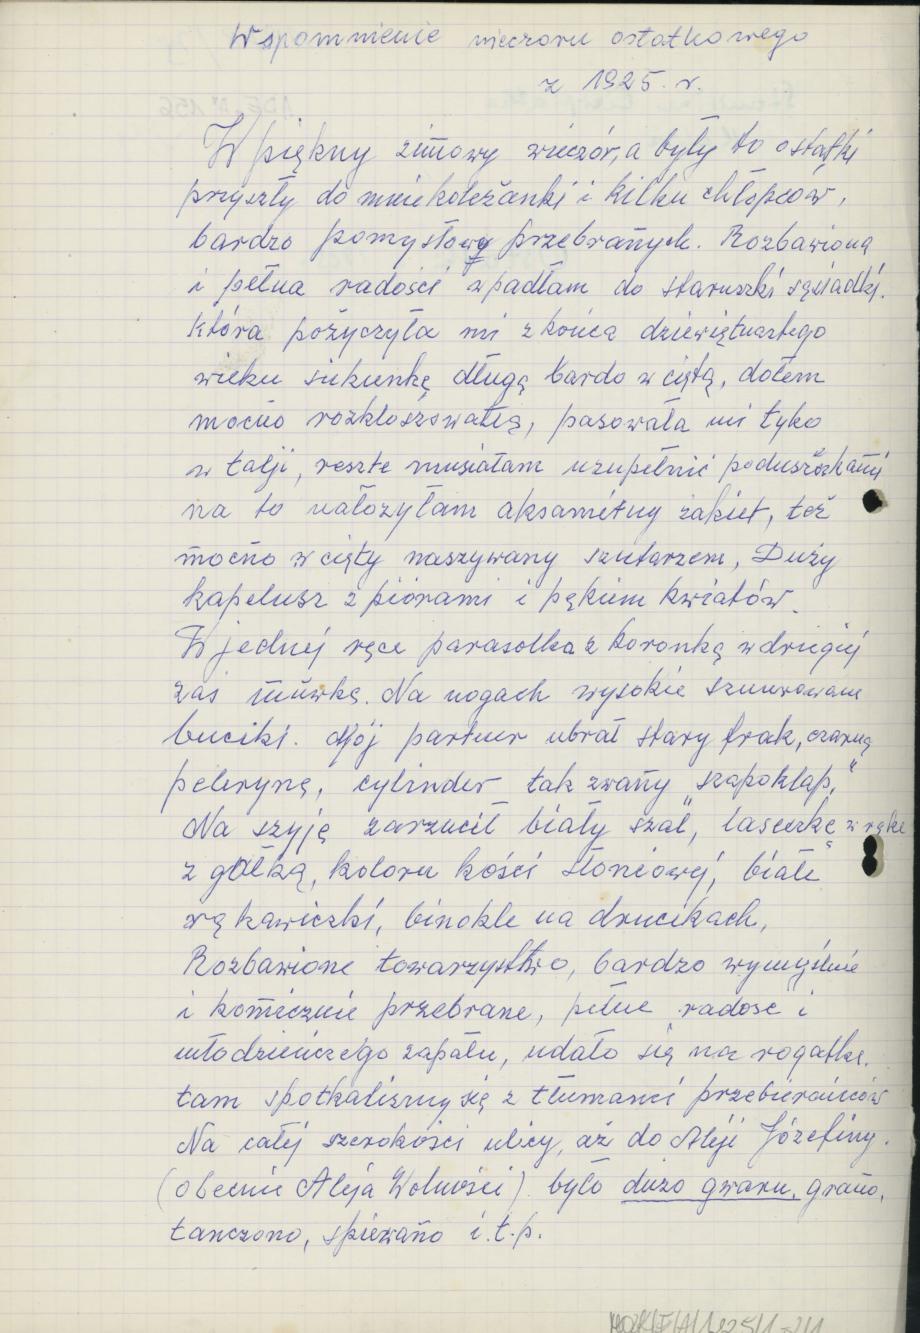 Wspomnienie wieczoru ostatkowego
z 1925. r.
W piękny zimowy wieczór, a były to ostatki
przyszły do mnie koleżanki i kilku chłopców,
bardzo pomysłowo przebranych. Rozbawiona
i pełna radości wpadłam do staruszki sąsiadki.
która pożyczyła mi z końca dziewiętnastego
wieku sukunkę długą bardo wciętą, dołem
mocno rozkloszowałą, pasowała mi tyko
w talji, reszte musiałam uzupełnić poduszkami
na to nałożyłam aksamitny żakiet, też
mocno wcięty naszywany szutarzem, Duży
kapelusz z piórami i pękiem kwiatów.
W jednej ręce parasolka z koronką w drugiej
zaś mufka. Na nogach wysokie sznurowane
buciki. Mój partner ubrał stary frak, czarną
pelerynę, cylinder tak zwany „szapoklap."
Na szyję zarzucił biały szal", laseczkę w ręke
z gałką, koloru kości słoniowej, białe
rękawiczki, binokle na drucikach,
Rozbawione towarzystwo, bardzo wymyślnie
i komicznie przebrane, pełne radosc i
młodzieńczego zapału, udało się na rogatkę.
tam spotkaliśmy się z tłumami przebierańców
Na całej szerokości ulicy, aż do Aleji Józefiny.
(obecnie Aleja Wolności) było dużo gwaru, grano,
tańczono, śpiewano i.t.p.